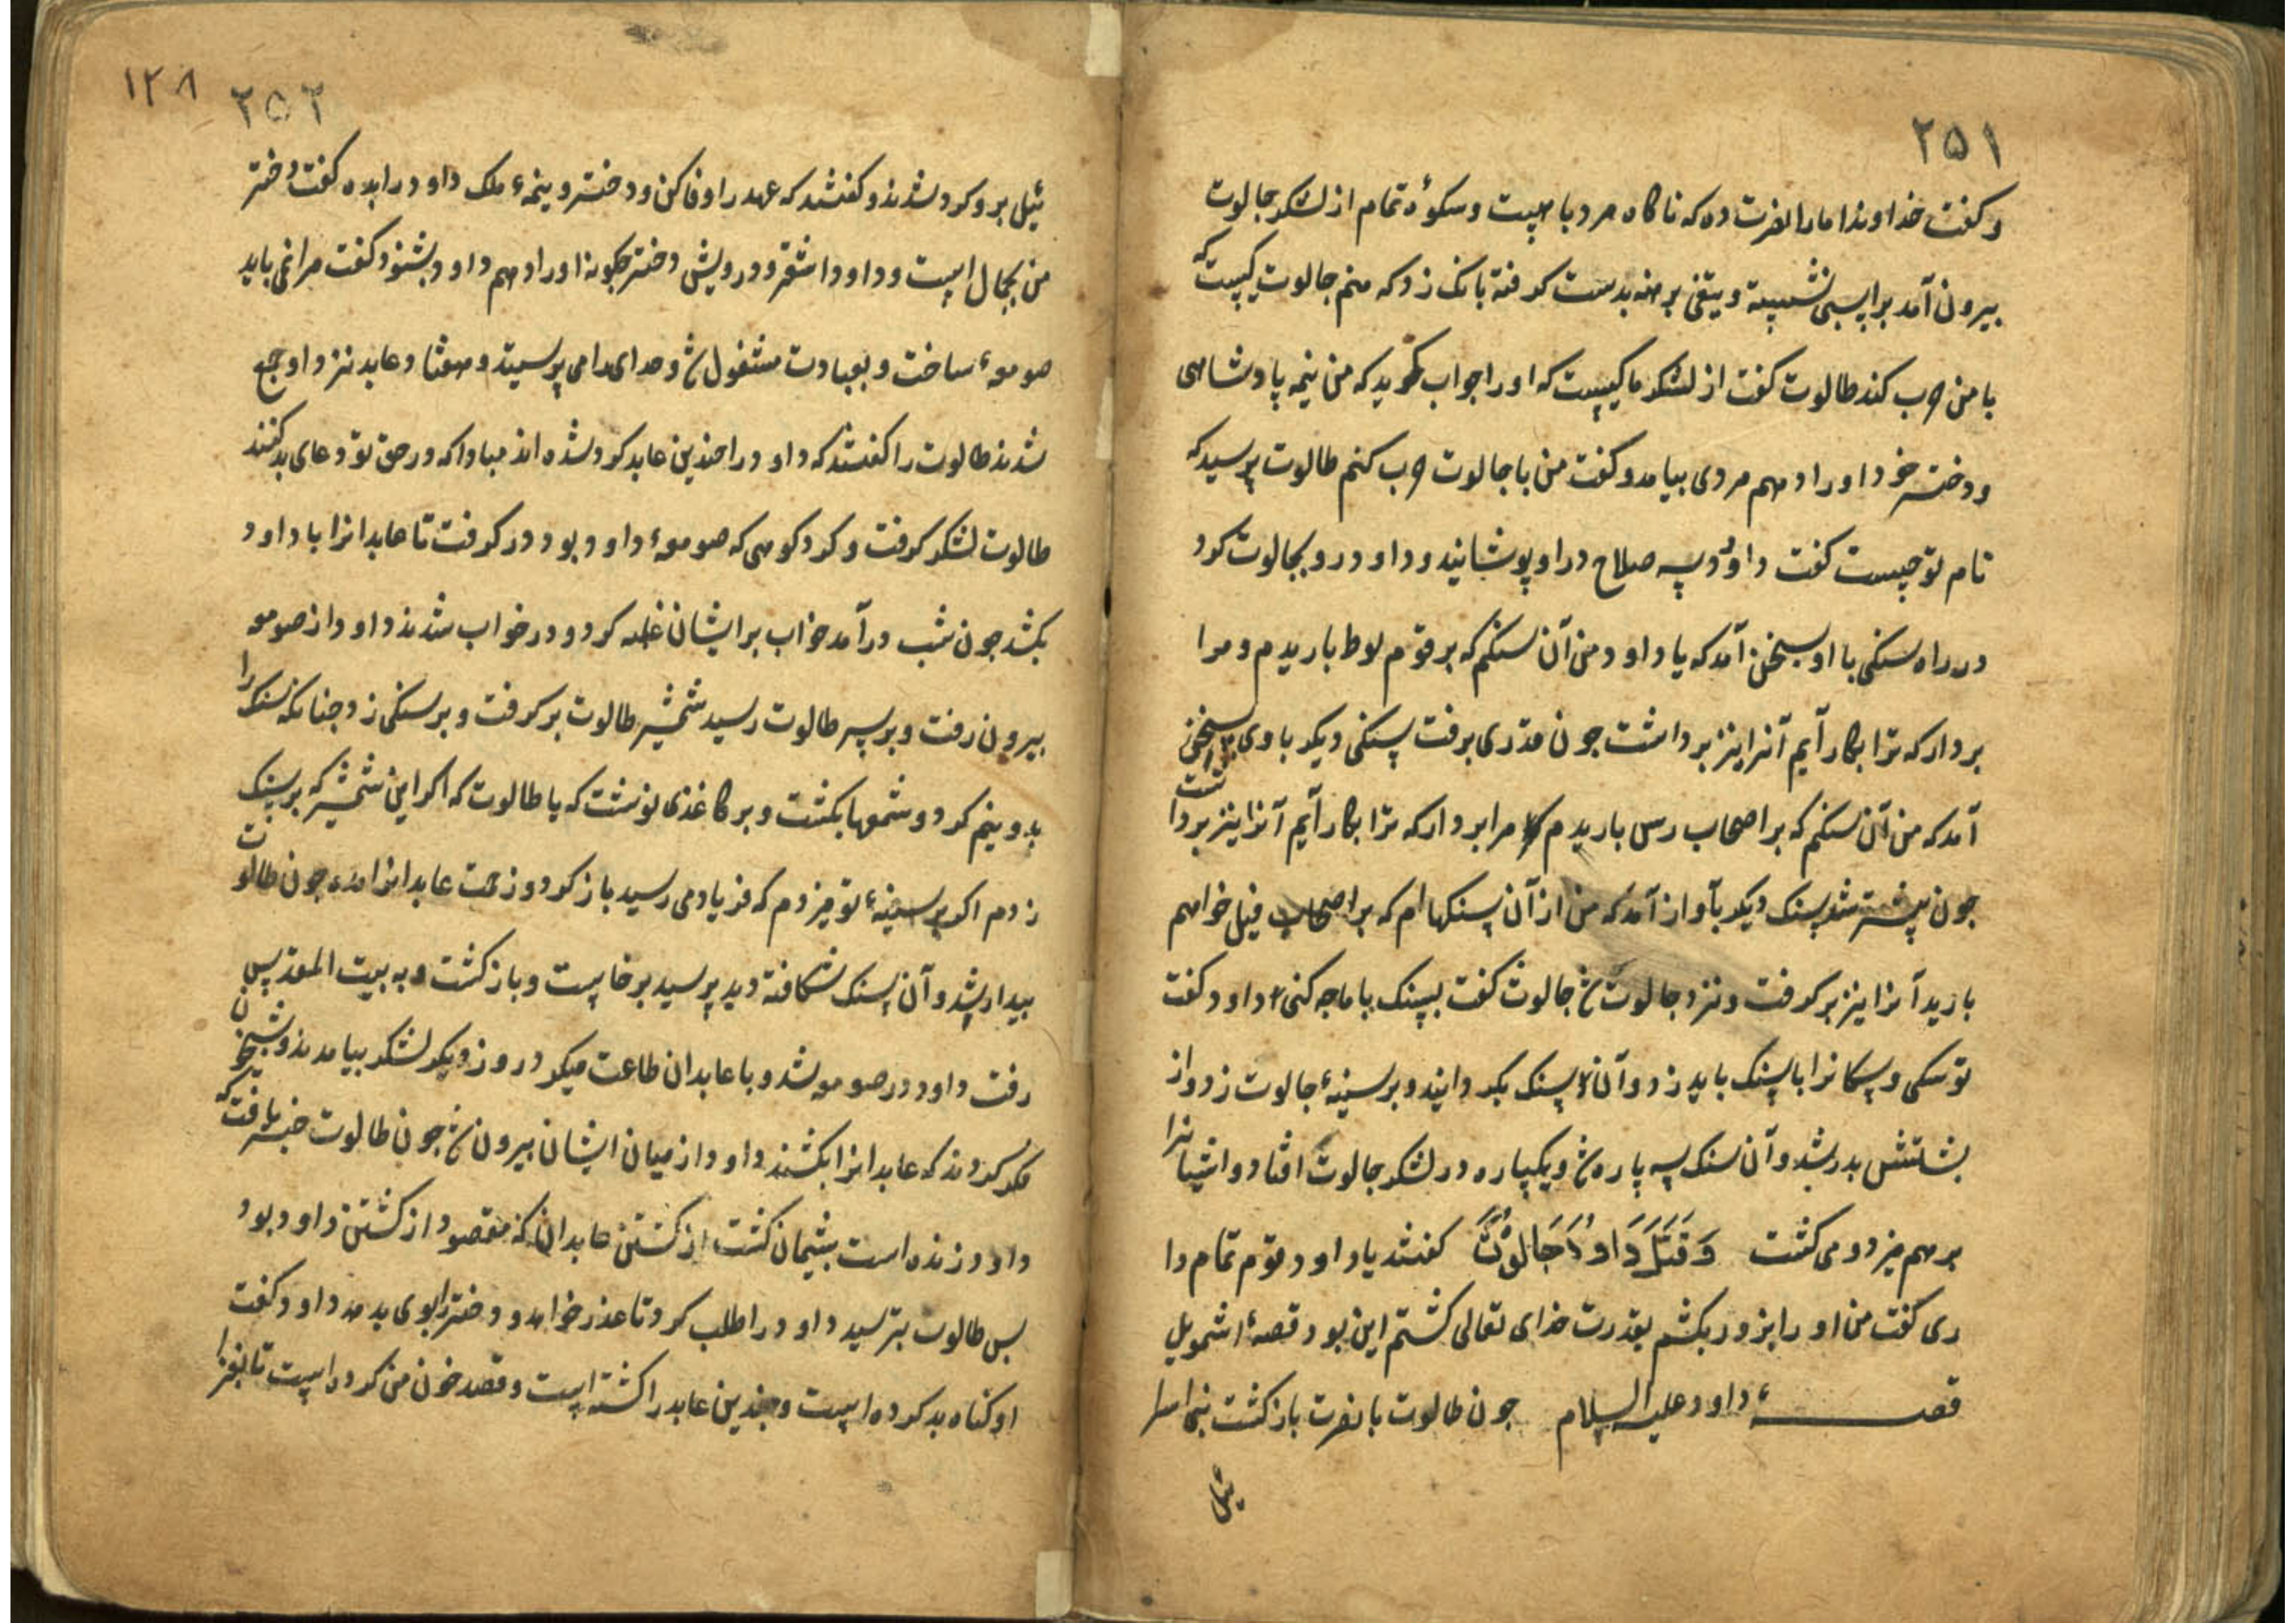 ۲۵۱
و کفت خداوندا مارا نصرت ده که ناکاه مردبا هیبت و سکوه تمام از لشکر جالوت
بیرون آمد بر اسبی نشسته و تیغی برهنه بدست کرفته بانک زد که منم جالوت کیست که
با من حرب کند طالوت کفت از لشکر ما کیست که اورا جواب کوید که من نیمه پادشاهی
و دختر خود اورا دهم مردی بیامد و کفت من با جالوت حرب کنم طالوت پرسید که
نام تو چیست کفت داود پسه صلاح در او پوشانید و داود رو بجالوت کرد
در راه سنکی با او بسخن آمد که یا داود من آن سنکم که بر قوم لوط باریدم و مرا
بردار که ترا بکار آیم آنرا نیز برداشت جون قدری برفت سنکی دیکر با وی بسخن
آمد که من آن سنکم که بر اصحاب رس باریدم مرا بردار که ترا بکار آیم آنرا نیز برداشت
جون پیشتر شد سنک دیکر بآواز آمد که من از آن سنکها ام که بر اصحاب فیل خواهم
بارید آنرا نیز برکرفت و نزد جالوت شد جالوت کفت بسنک با ما جه کنی داود کفت
تو سکی و سکانرا با سنک باید زد و آن سنک بکردانید و بر سینهٔ جالوت زد و از
پشتش بدر شد و آن سنک سه پاره شد و یکپاره در لشکر جالوت افتاد و ایشیانرا
برهم میزد و می کشت وَقَتَلَ دَاوُدُ جَالُوتَ کفتند یا داود قوم تمام را
ری کفت من اورا بزور بکشم بقدرت خدای تعالی کشتم این بود قصهٔ اشمویل
قصهٔ داود علیه السلام جون طالوت با نصرت بازکشت بنی اسرا
ئیل
۲۵۲ ۱۲۸
ئیل برو کرد شدند و کفتند که عهد را وفا کن و دختر و نیمهٔ ملک داود را بده کفت دختر
من بجمال است و داود اشقر و درویش دختر جکونه اورا دهم داود بشنود کفت مرا نمی باید
صومعهٔ ساخت و بعبادت مشغول شد و خدای را می پرسیتد و هفتاد عابد نزد او جمع
شدند طالوت را کفتند که داود را جندین عابد کرد شده اند مبادا که در حق تو دعای بد کنند
طالوت لشکر کرفت و کرد کوهی که صومعهٔ داود بود در کرفت تا عابدانرا با داود
بکشد جون شب درآمد خواب بر ایشان غلبه کرد و در خواب شدند داود از صومعه
بیرون رفت و بر سر طالوت رسید شمشیر طالوت برکرفت و بر سنکی زد جنانکه سنک را
بدو نیم کرد و شمعها بکشت و بر کاغذی نوشت که یا طالوت که اکر این شمشیر که بر سنک
زدم اکر بر سینهٔ تو میزدم که فریاد می رسید باز کرد و زحمت عابدانرا مده جون طالوت
بیدار شد و آن سنک شکافته دید پرسید برخاست و بازکشت و به بیت المقدس
رفت داود در صومعه شد و با عابدان طاعت میکرد روز دیکر لشکر بیامدند و شبیخون
کردند که عابدانرا بکشند داود از میان ایشان بیرون شد جون طالوت خبر یافت که
داود زنده است پشیمان کشت از کشتن عابدان که مقصود از کشتن داود بود
پس طالوت بترسید داود را طلب کرد تا عذر خواهد و دختر را بوی بدهد داود کفت
او کناه بد کرده است و جندین عابد را کشته است و قصد خون من کرده است تا بغزا